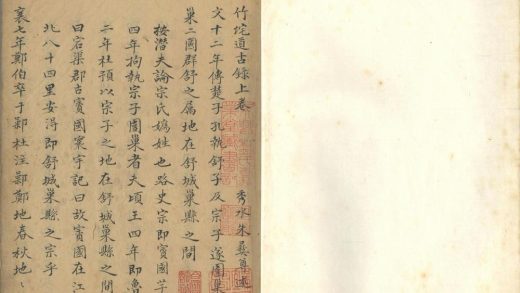 竹垞道古錄上卷
秀水朱彝尊述
文十二年傳楚子孔執舒子及宗子遂圍巢
巢二國群舒之屬地在舒城巢縣之間
按潛夫論宗氏嬀姓也路史宗即賨國芉
四年拘執宗子圍巢者夫頃王四年即魯
二年杜預以宗子之地在舒城巢縣之間
曰宕渠郡古賨國寰宇記曰故賨國在江
北八十四里安得即舒城巢縣之宗乎
襄七年鄭伯卒于鄵杜注鄵鄭地春秋地